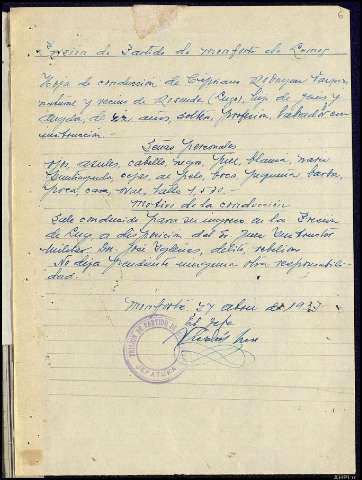 6
Prisión de Partido de Monforte de Lemos
Hoja de conducción de Cipriano
natural y vecino de Rosende (Lugo), hijo de Jesús y
de años, soltero, profesión, labrador con
instrucción.-
Señas personales
ojos, azules, cabello negro, piel, blanca, nariz
cejas, al pelo, boca pequeña barba,
poca, cara, oval, talla 1,570.-
Motivo de la conducción
Sale conducido para su ingreso en la Prisión
de Lugo a disposición del Sr Juez Instructor
Militar Don José Iglesias, delito, rebelion
No deja pendiente ninguna otra responsabili-
dad.
Monforte 27 abril de 1937
El Jefe
PRISION DE PARTIDO DE
JEFATURA
AHPLu